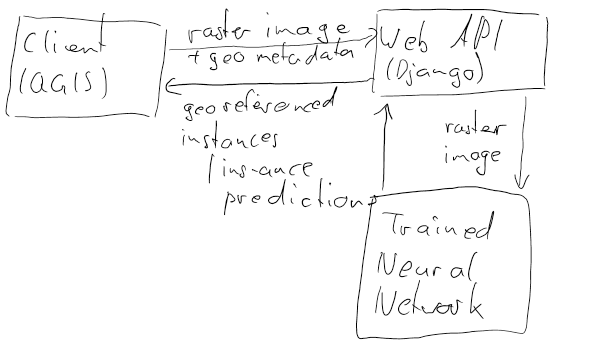 Client
(QGIS)
raster image
+ geo metadata
Web API
(Django)
georeferenced
instances
raster
image
/ins-ance
predictions
Trained
Neural
Network